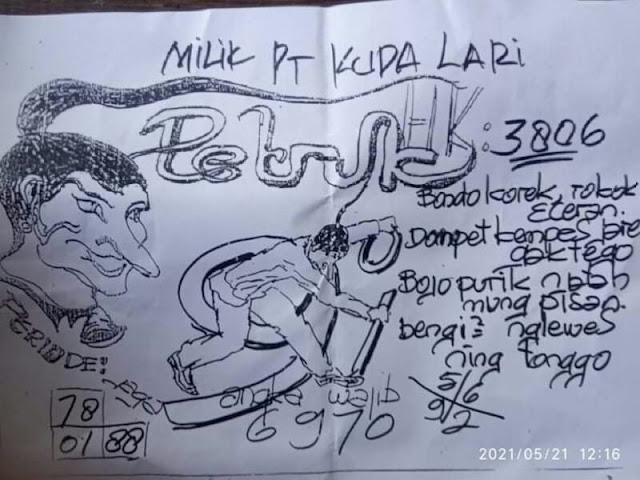 MILIK PT KUDA LARI
Petruk HK: 3806
Bondo korek, rokok
Eceran.
Dompet kempes bie
gak tego
Bojo purik
mung pisan.
bengi2 nglewes
ning tonggo
5/6
9/2
PERIODE:
angka wajib
6970
78
01 88
2021/05/21 12:16